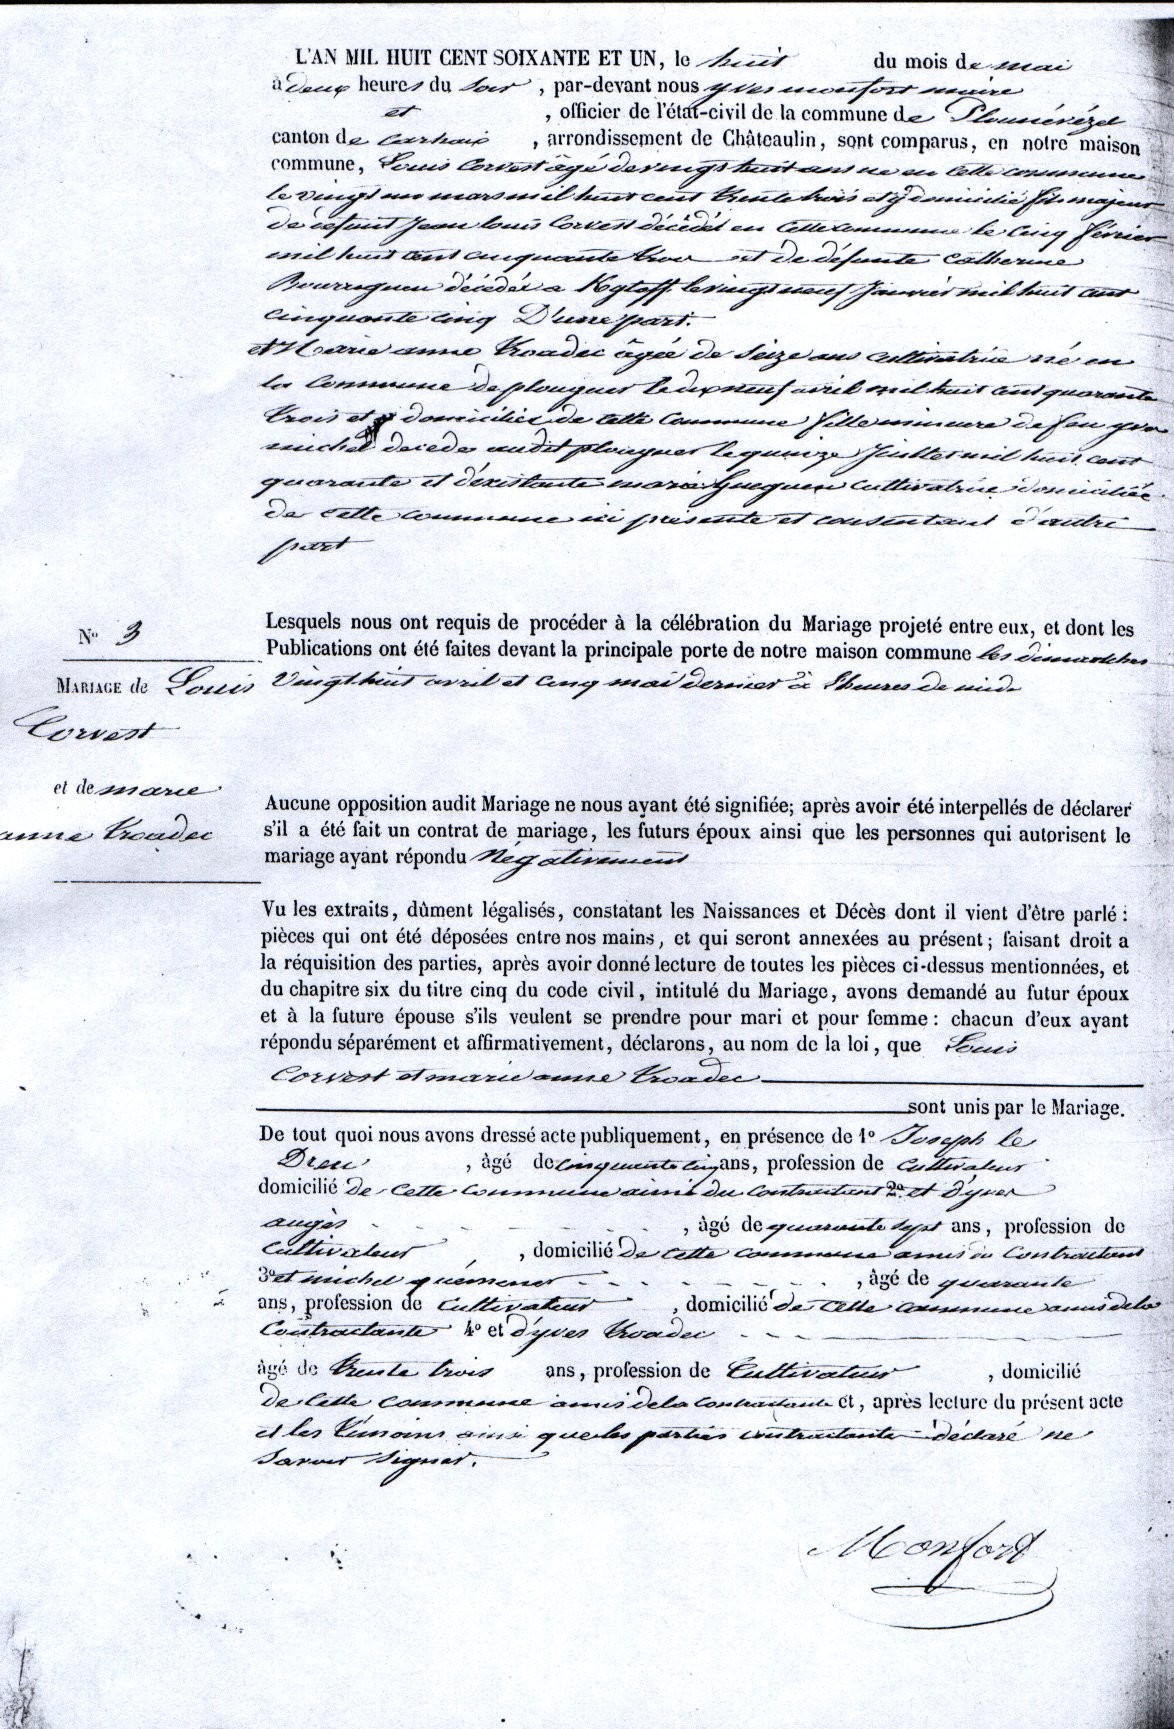 L'AN MIL HUIT CENT SOIXANTE ET UN, le huit du mois de mai
à deux heures du soir, par-devant nous yves monfort maire
et , officier de l'état-civil de la commune de Plounévézel
canton de carhaix , arrondissement de Châteaulin, sont comparus, en notre maison
commune, Louis Corvest âgé de vingt huit ans né en cette commune
le vingt un mars mil huit cent trente trois et y domicilié fils majeur
de défunt Jean louis Corvest décédé en cette commune le cinq février
mil huit cent cinquante trois et de défunte catherine
décédée a le vingt neuf Janvier mil huit cent
cinquante cinq D'une part.
et Marie anne troadec âgée de Seize ans cultivatrice né en
la commune de plouguer le dix neuf avril mil huit cent quarante
trois et y domiciliée de cette commune fille mineure de feu
michel décédé audit plouguer le quinze Juillet mil huit cent
quarante et d'existante marie Gueguen cultivatrice domiciliée
de cette commune ici présente et consentant d'autre
part
Lesquels nous ont requis de procéder à la célébration du Mariage projeté entre eux, et dont les
Publications ont été faites devant la principale porte de notre maison commune les dimanches
Vingt huit avril et cinq mai dernier à heures de midi
N° 3
MARIAGE de Louis
Corvest
et de marie
anne troadec
Aucune opposition audit Mariage ne nous ayant été signifiée; après avoir été interpellés de déclarer
s'il a été fait un contrat de mariage, les futurs époux ainsi que les personnes qui autorisent le
mariage ayant répondu Négativement
Vu les extraits, dûment légalisés, constatant les Naissances et Décès dont il vient d'être parlé :
pièces qui ont été déposées entre nos mains, et qui seront annexées au présent; faisant droit a
la réquisition des parties, après avoir donné lecture de toutes les pièces ci-dessus mentionnées, et
du chapitre six du titre cinq du code civil, intitulé du Mariage, avons demandé au futur époux
et à la future épouse s'ils veulent se prendre pour mari et pour femme : chacun d'eux ayant
répondu séparément et affirmativement, déclarons, au nom de la loi, que Louis
Corvest et marie anne troadec
sont unis par le Mariage.
De tout quoi nous avons dressé acte publiquement, en présence de 1° Joseph le
Dreu , âgé de cinquante cinq ans, profession de cultivateur
domicilié de cette commune ami du contractant 2° et d'yves
augès , âgé de quarante sept ans, profession de
cultivateur , domicilié de cette commune amis du contractant
3° et michel quémener , âgé de quarante
ans, profession de cultivateur , domicilié de cette commune amis de la
contractante 4° et d'yves troadec
âgé de trente trois ans, profession de Cultivateur , domicilié
de cette commune amis de la contractante et, après lecture du présent acte
et les témoins ainsi que les parties contractante déclaré ne
savoir signer.
Monfort